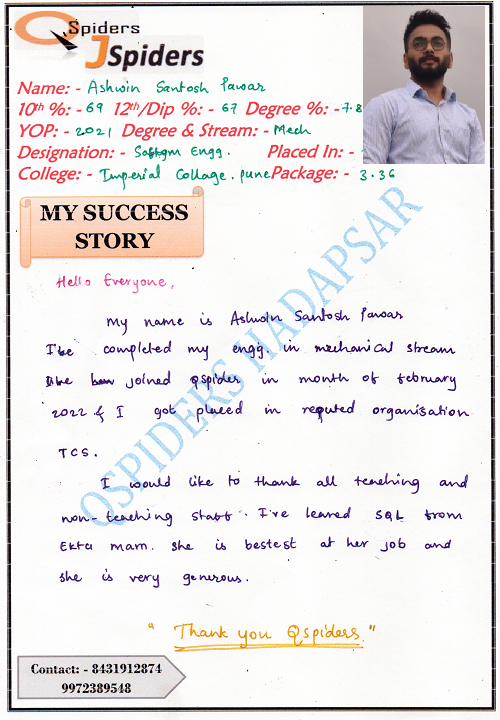 QSpiders
JSpiders
Name: - Ashwin Santosh Pawar
10th %: - 69 12th/Dip %: - 67 Degree %: - 7.8
YOP: - 2021 Degree & Stream: - Mech
Designation: - Engg. Placed In: -
College: - Imperial Collage. pune Package: - 3.36
MY SUCCESS
STORY
Hello Everyone,
My name is Ashwin Santosh Pawar
I've completed my engg. in mechanical stream
joined Qspider in month of february
2022 & I got placed in reputed organisation
TCS.
I would like to thank all teaching and
non-teaching staff. I've leared SQL from
Ekta mam. she is bestest at her job and
she is very generous.
"Thank you Qspiders."
Contact: - 8431912874
9972389548
QSPIDERS HADAPSAR